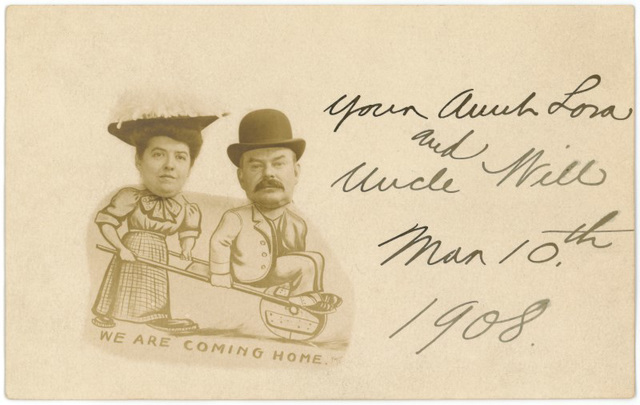 Your Aunt Lora
and
Uncle Will
Mar 10.th
1908.
WE ARE COMING HOME.